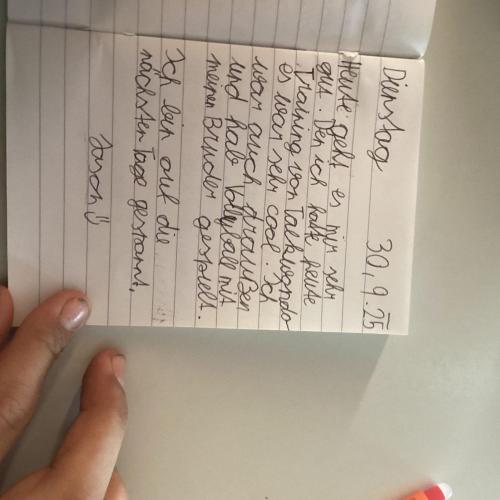 Dienstag 30.9.25
Heute geht es mir sehr
gut. Den ich hatte heute
Training von Taekwondo
es war sehr cool. Ich
war auch draußen
und hab Volleyball mit
meinen Bruder gespielt.
Ich bin auf die
nächsten Tage gespannt.
Jason